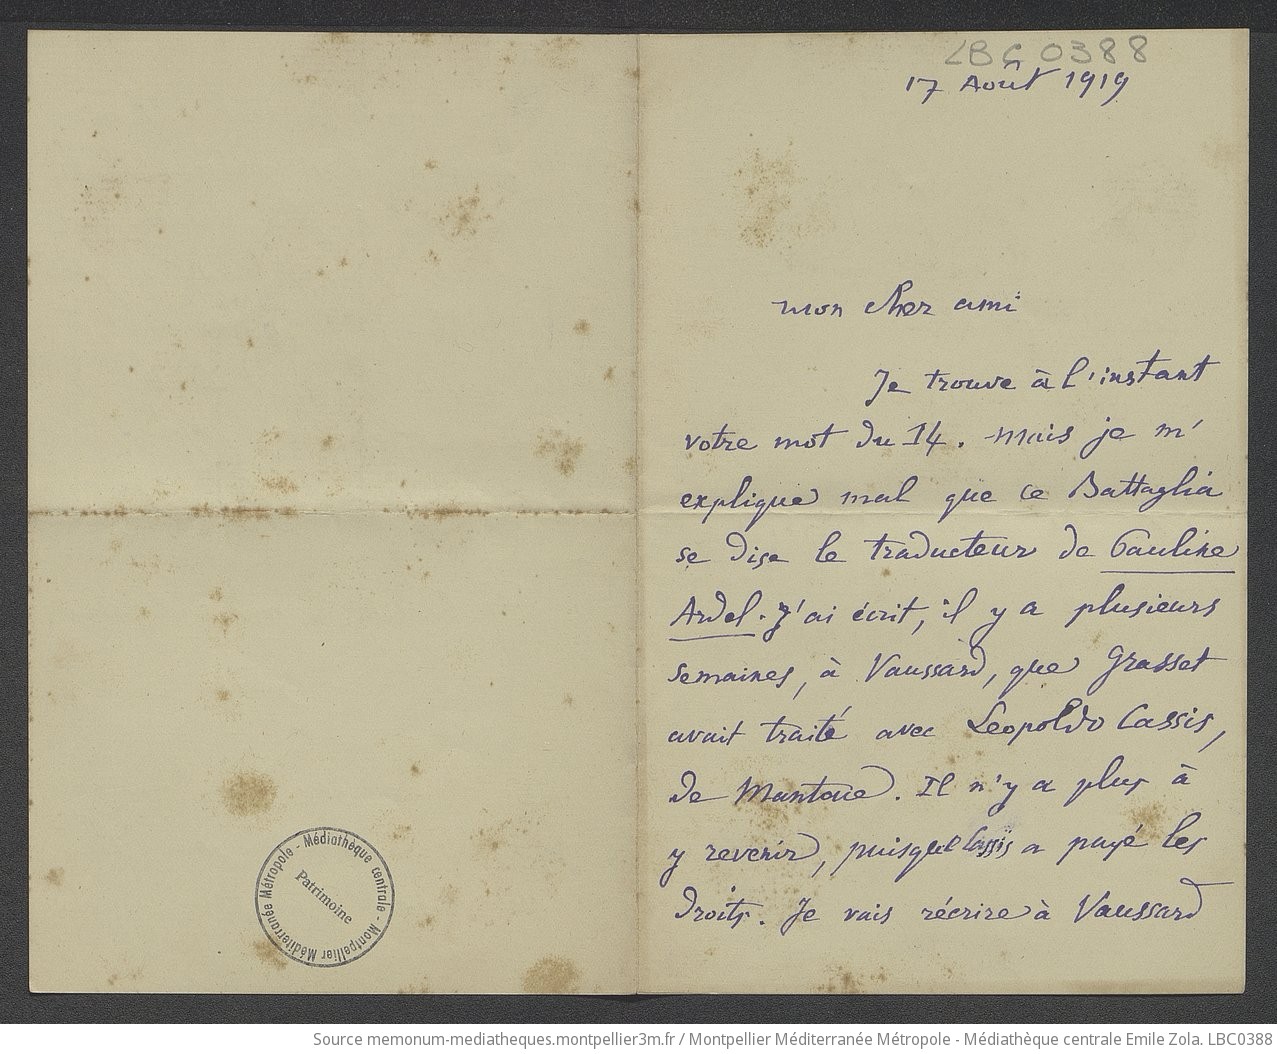 LBC 0388
17 Août 1919
mon cher ami
Je trouve à l'instant
votre mot du 14. mais je m'
explique mal que ce Battaglia
se dise le traducteur de Pauline
Ardel. J'ai écrit, il y a plusieurs
semaines, à Vaussard, que Grasset
avait traité avec Leopoldo Cassis,
de Mantoue. Il n'y a plus à
y revenir, puisque Cassis a payé les
droits. Je vais récrire à Vaussard
Médiathèque centrale - Montpellier Méditerranée Métropole -
Patrimoine
Source memonum-mediatheques.montpellier3m.fr / Montpellier Méditerranée Métropole - Médiathèque centrale Emile Zola. LBC0388